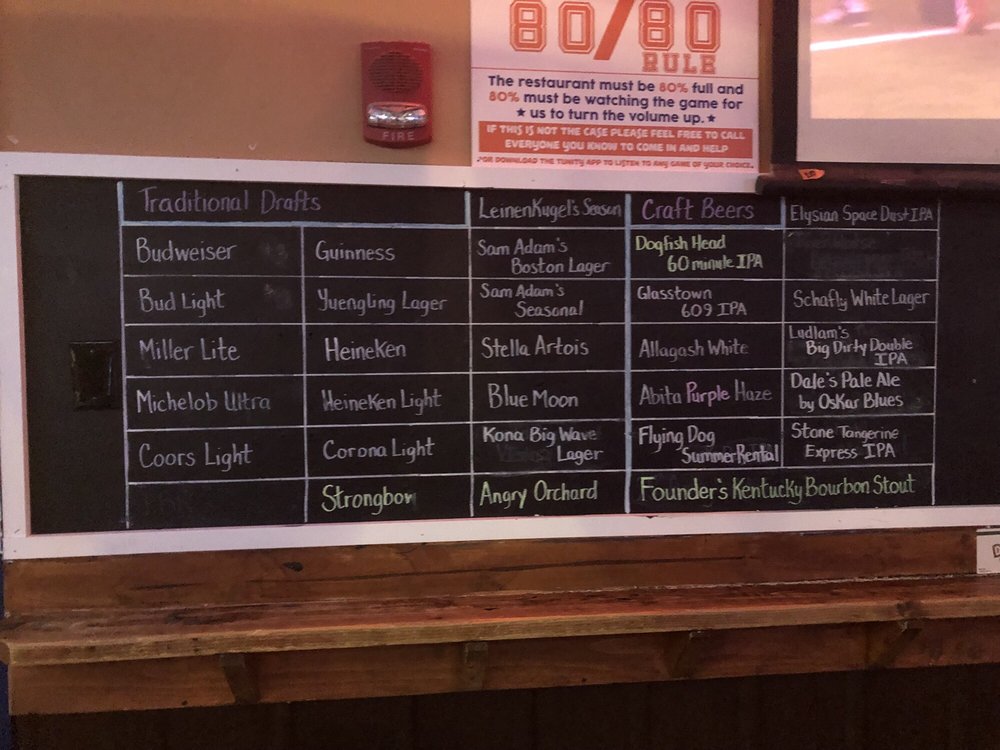 80/80
RULE
The restaurant must be 80% full and
80% must be watching the game for
★ us to turn the volume up. ★
IF THIS IS NOT THE CASE PLEASE FEEL FREE TO CALL
EVERYONE YOU KNOW TO COME IN AND HELP
*OR DOWNLOAD THE TUNITY APP TO LISTEN TO ANY GAME OF YOUR CHOICE.
FIRE
Traditional Drafts
Budweiser
Bud Light
Miller Lite
Michelob Ultra
Coors Light
Guinness
Yuengling Lager
Heineken
Heineken Light
Corona Light
Strongbow
Leinenkugel's Season
Sam Adam's
Boston Lager
Sam Adam's
Seasonal
Stella Artois
Blue Moon
Kona Big Wave
Lager
Angry Orchard
Craft Beers
Dogfish Head
60 minute IPA
Glasstown
609 IPA
Allagash White
Abita Purple Haze
Flying Dog
Summer Rental
Founder's Kentucky Bourbon Stout
Elysian Space Dust IPA
Schafly White Lager
Ludlam's
Big Dirty Double
IPA
Dale's Pale Ale
by Oskar Blues
Stone Tangerine
Express IPA